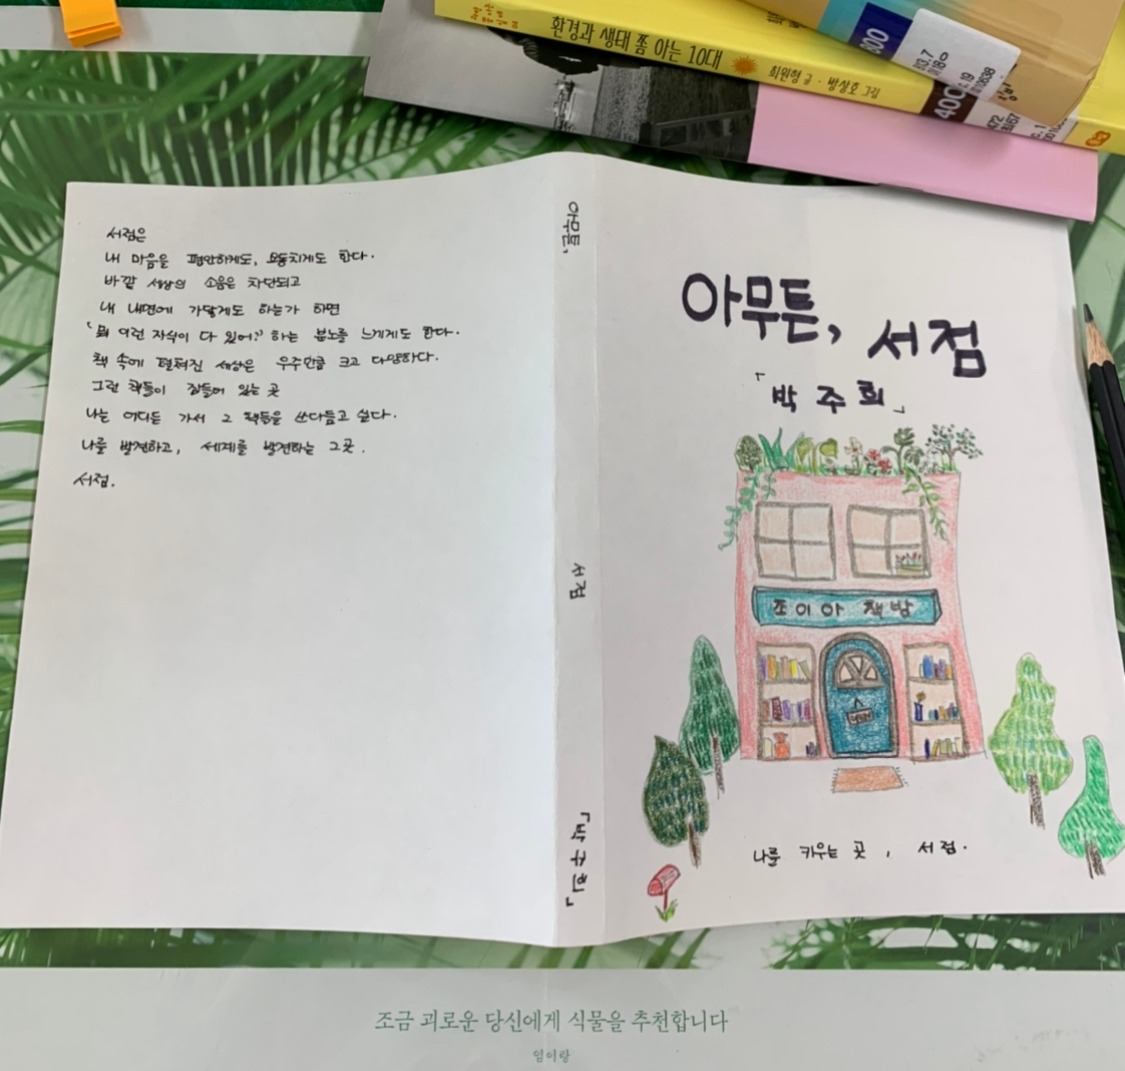 환경과 생태 좀 아는 10대
최원형 글 · 방상호 그림
800
400
서점은
내 마음을 평안하게도, 요동치게도 한다.
바깥 세상의 소음은 차단되고
내 내면에 가닿게도 하는가 하면
'뭐 이런 자식이 다 있어?' 하는 분노를 느끼게도 한다.
책 속에 펼쳐진 세상은 우주만큼 크고 다양하다.
그런 책들이 잠들어 있는 곳
나는 어디든 가서 그 책들을 쓰다듬고 싶다.
나를 발견하고, 세계를 발견하는 그곳.
서점.
아무튼,
서점
「박주희」
아무튼, 서점
「박주희」
조이아 책방
나를 키우는 곳, 서점.
조금 괴로운 당신에게 식물을 추천합니다
임이랑